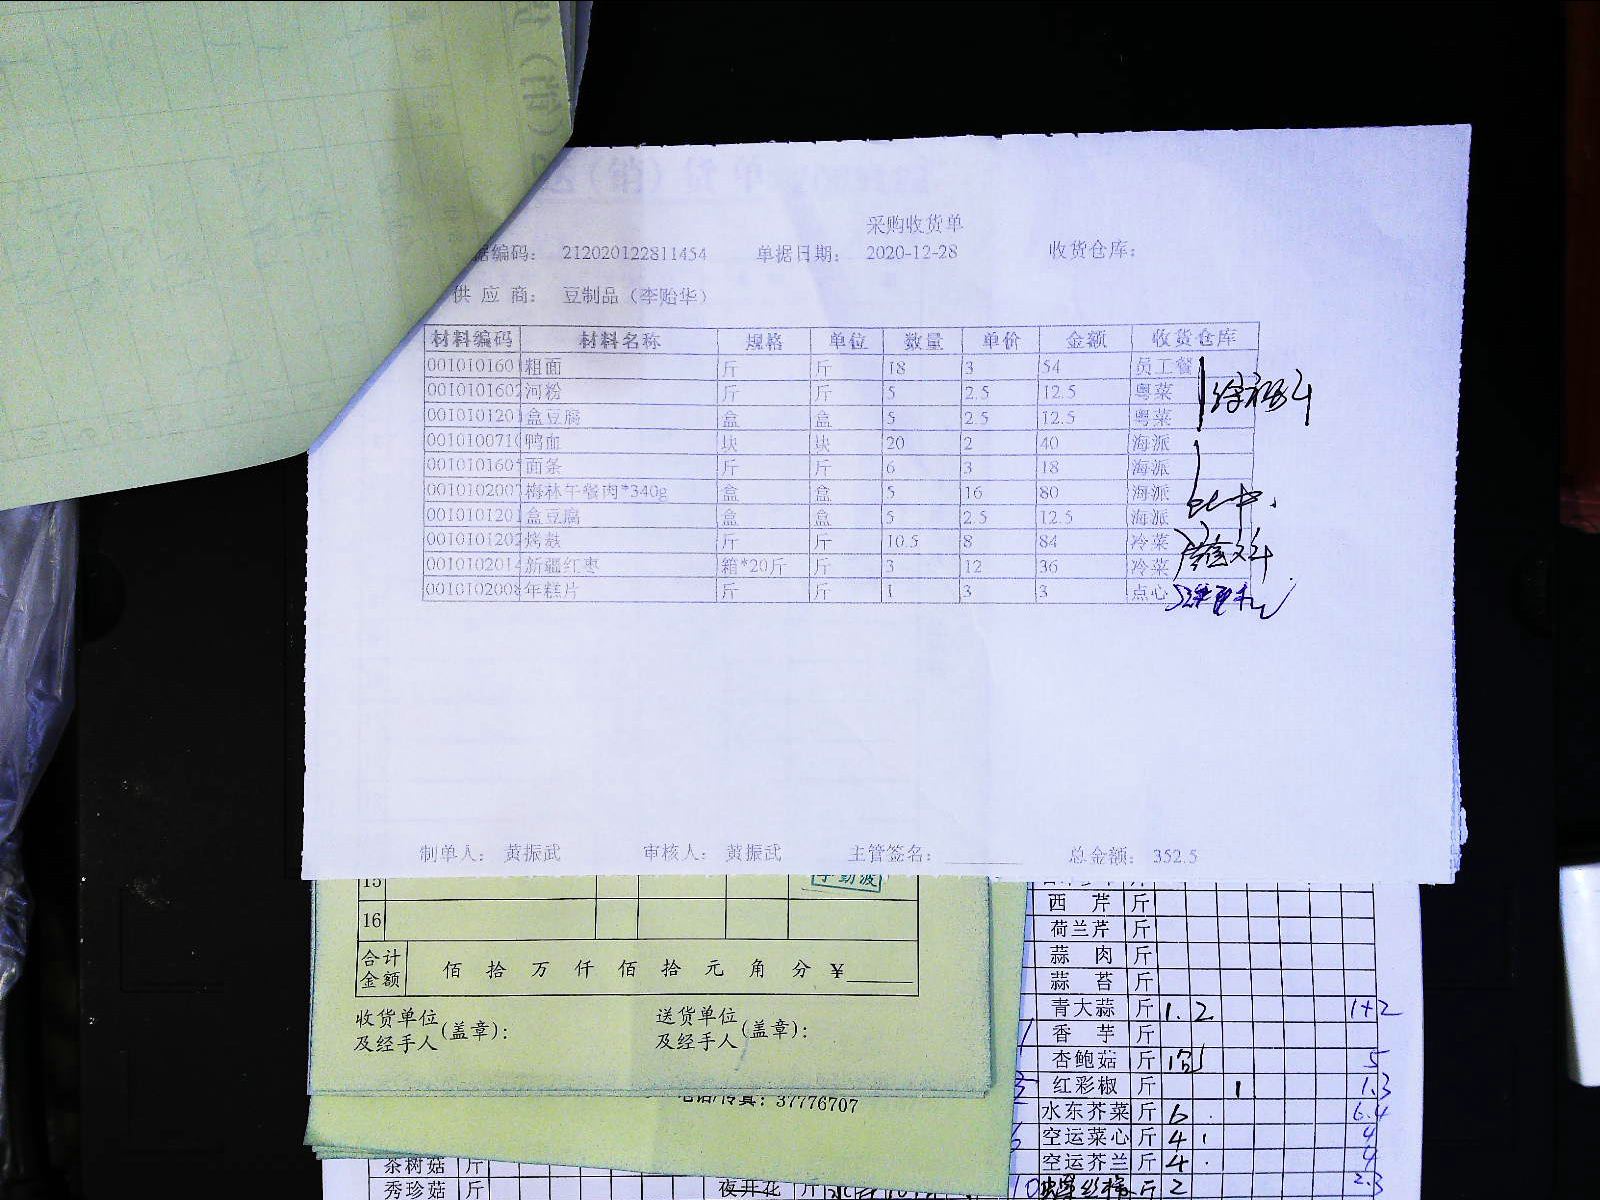 采购收货单
据编码： 212020122811454 单据日期： 2020-12-28 收货仓库：
供 应 商： 豆制品（李贻华）
材料编码 材料名称 规格 单位 数量 单价 金额 收货仓库
001010160 粗面 斤 斤 18 3 54 员工餐
001010160 河粉 斤 斤 5 2.5 12.5 粤菜
001010120 盒豆腐 盒 盒 5 2.5 12.5 粤菜
001010071 鸭血 块 块 20 2 40 海派
001010160 面条 斤 斤 6 3 18 海派
001010200 梅林午餐肉*340g 盒 盒 5 16 80 海派
001010120 盒豆腐 盒 盒 5 2.5 12.5 海派
001010120 烤麸 斤 斤 10.5 8 84 冷菜
001010201 新疆红枣 箱*20斤 斤 3 12 36 冷菜
001010200 年糕片 斤 斤 1 3 3 点心
制单人： 黄振武 审核人： 黄振武 主管签名： 总金额： 352.5
15
16
合计金额 佰 拾 万 仟 佰 拾 元 角 分 ¥
收货单位及经手人(盖章)： 送货单位及经手人(盖章)：
电话/传真：37776707
西 芹 斤
荷兰芹 斤
蒜 肉 斤
蒜 苔 斤
青大蒜 斤 1.2 1+2
香 芋 斤
杏鲍菇 斤 5
红彩椒 斤 1 1.3
水东芥菜 斤 6 6.4
空运菜心 斤 4 4
空运芥兰 斤 4 4
茶树菇 斤
秀珍菇 斤 夜开花 斤
螺丝椒 斤 2 2.3